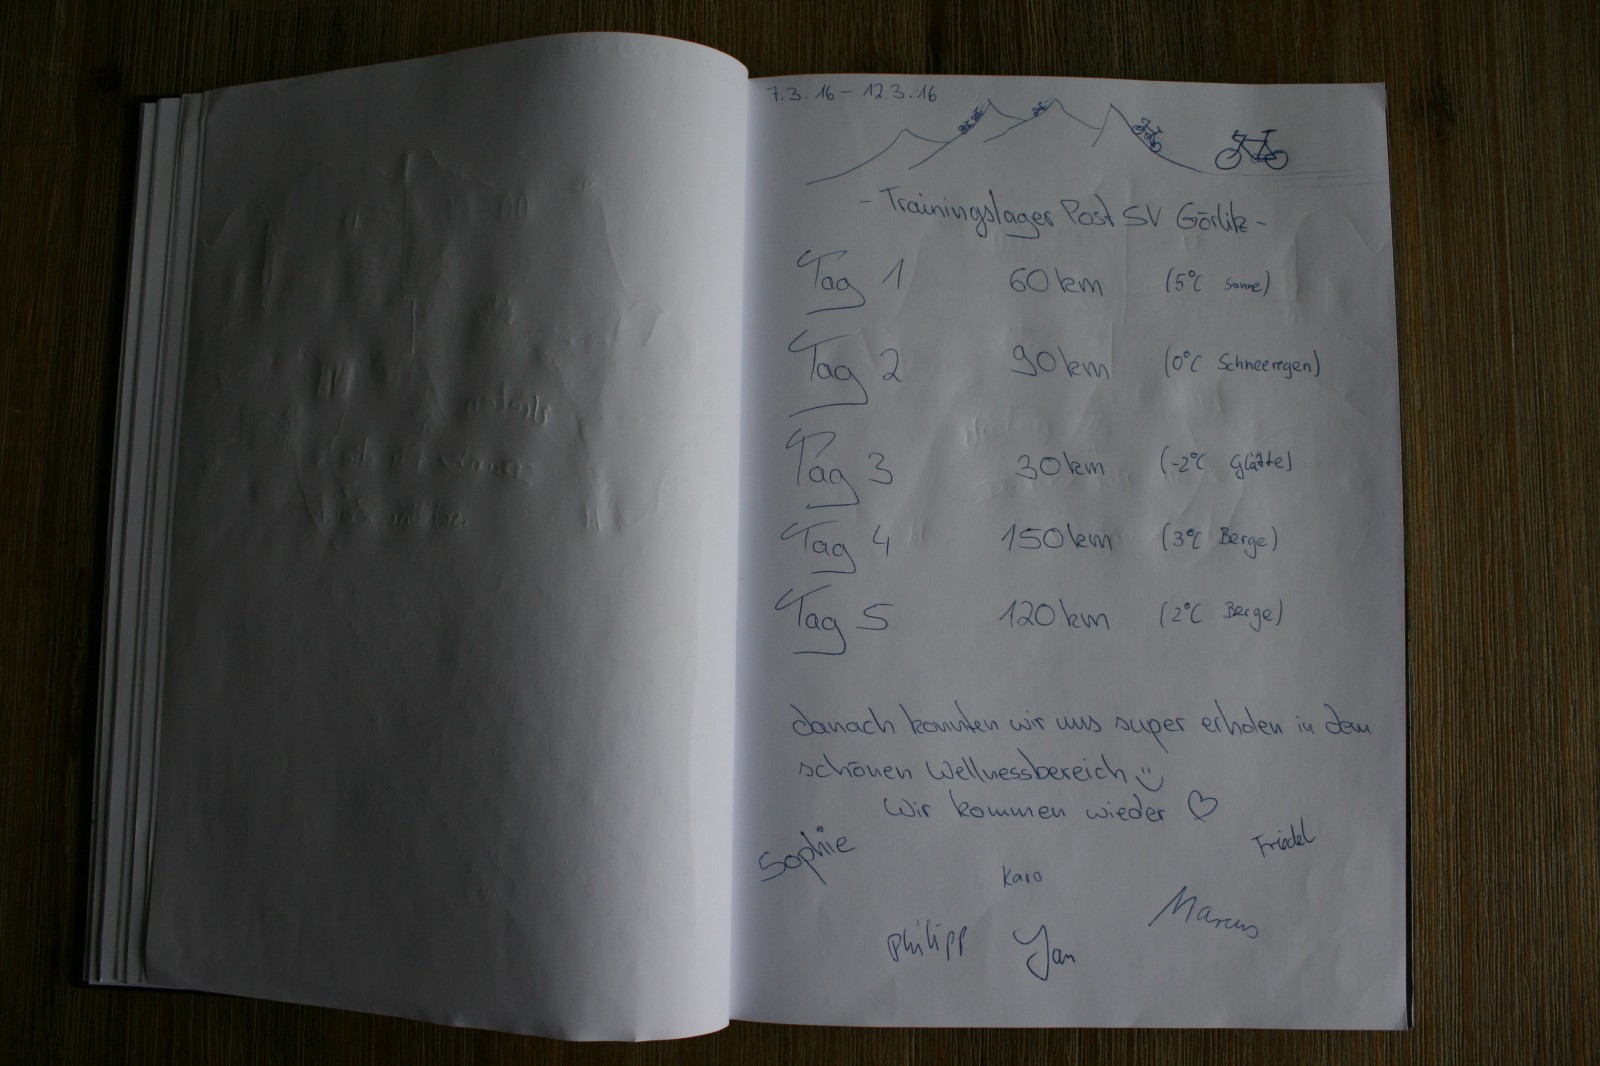 7.3.16 – 12.3.16
- Trainingslager Post SV Görlitz -
Tag 1 60 km (5°C Sonne)
Tag 2 90 km (0°C Schneeregen)
Tag 3 30 km (-2°C Glätte)
Tag 4 150 km (3°C Berge)
Tag 5 120 km (2°C Berge)
danach konnten wir uns super erholen in dem
schönen Wellnessbereich
Wir kommen wieder ♡
Sophie
Friedel
Karo
Marcus
Philipp
Jan